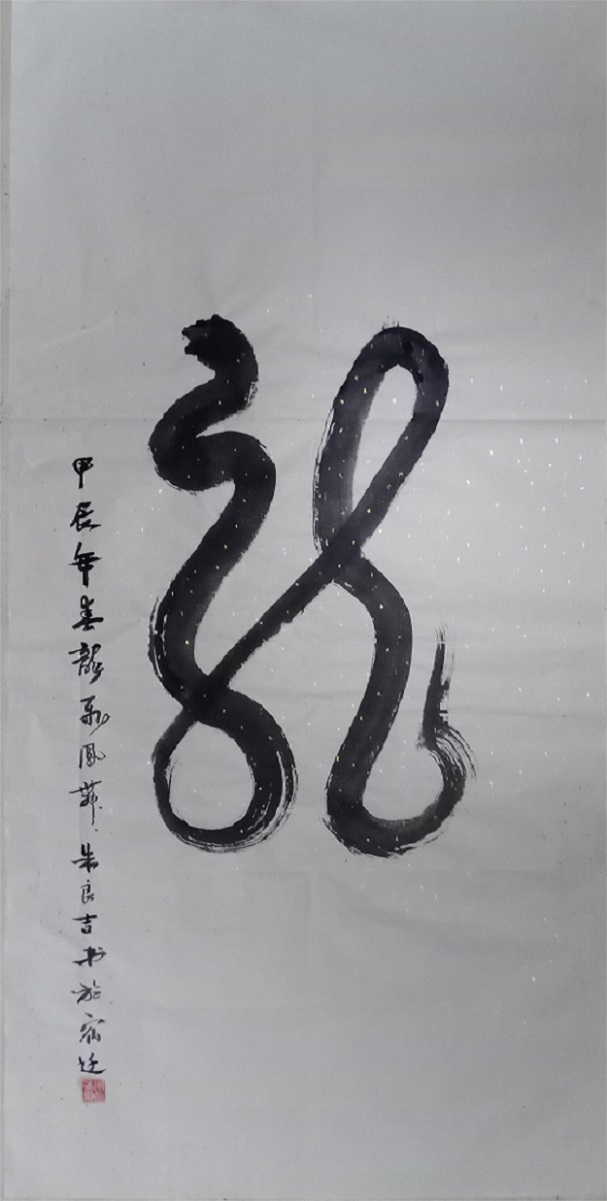 龍
甲辰年春龍飛鳳舞朱良吉书於宿迁